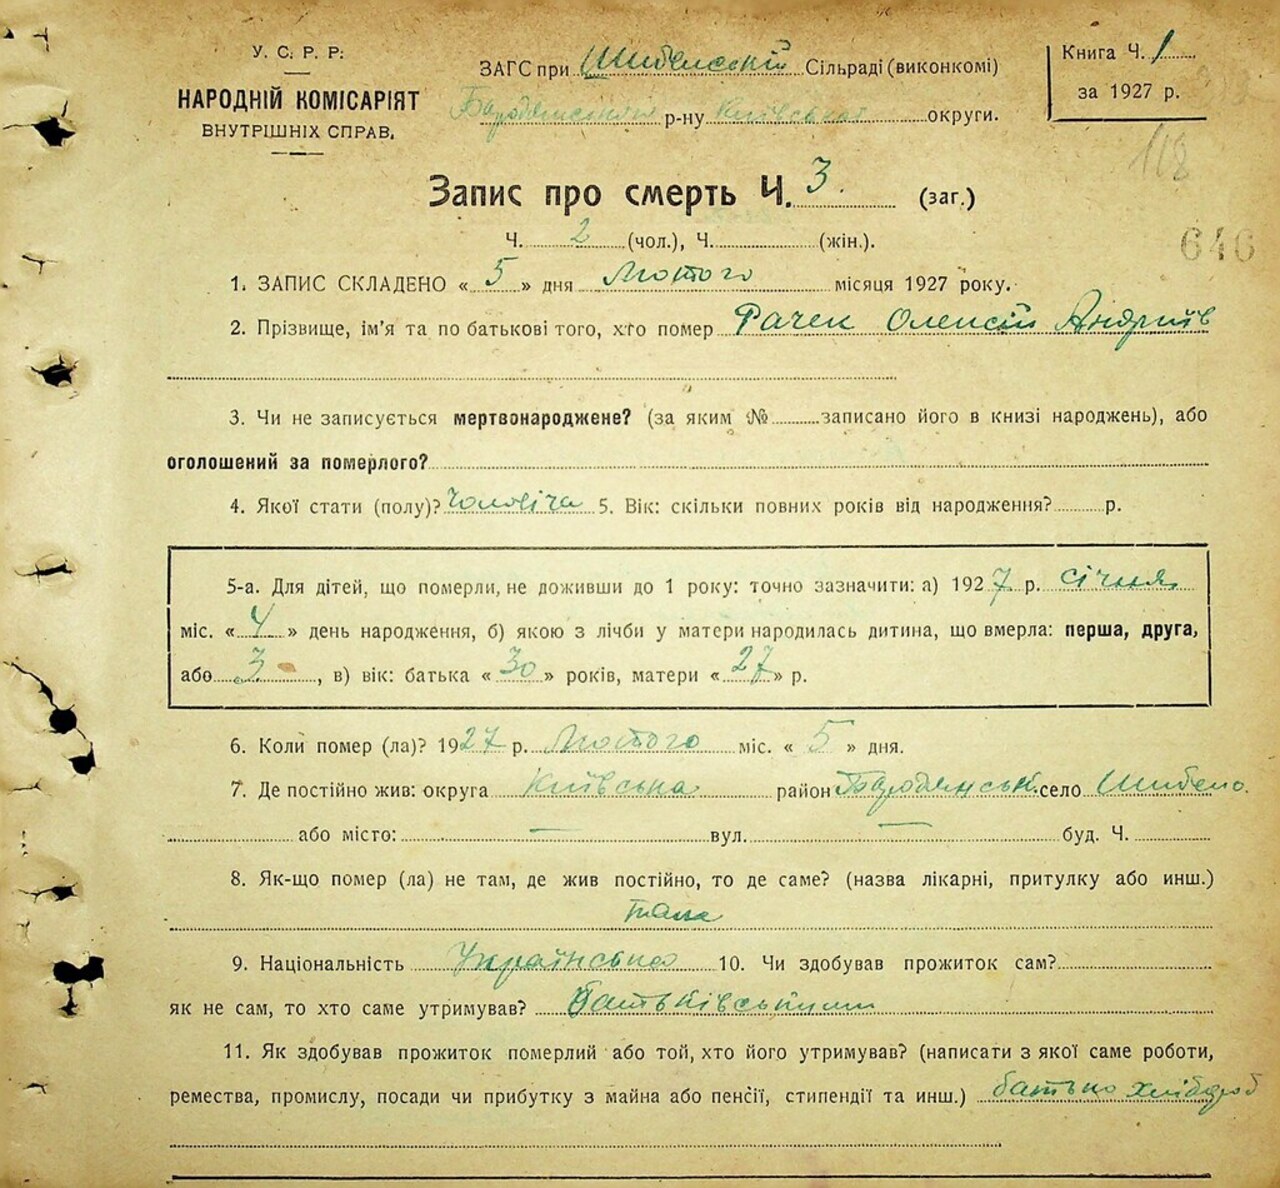 У. С. Р. Р.
НАРОДНІЙ КОМІСАРІЯТ
ВНУТРІШНІХ СПРАВ.
ЗАГС при Шибенській Сільраді (виконкомі)
Бородянському р-ну Київської округи.
Книга Ч. 1
за 1927 р.
118
Запис про смерть Ч. 3. (заг.)
Ч. 2 (чол.), Ч. (жін.).
646
1. ЗАПИС СКЛАДЕНО « 5 » дня Лютого місяця 1927 року.
2. Прізвище, ім'я та по батькові того, хто помер Рачек Олексій Андріїв
3. Чи не записується мертвонароджене? (за яким № записано його в книзі народжень), або
оголошений за померлого?
4. Якої стати (полу)? Чоловіча 5. Вік: скільки повних років від народження? р.
5-а. Для дітей, що померли, не доживши до 1 року: точно зазначити: а) 1927 р. січня
міс. « 4 » день народження, б) якою з лічби у матери народилась дитина, що вмерла: перша, друга,
або 3, в) вік: батька « 30 » років, матери « 27 » р.
6. Коли помер (ла)? 1927 р. Лютого міс. « 5 » дня.
7. Де постійно жив: округа Київська район Бородянськ. село Шибено.
або місто: — вул. — буд. Ч.
8. Як-що помер (ла) не там, де жив постійно, то де саме? (назва лікарні, притулку або инш.)
9. Національність Українська 10. Чи здобував прожиток сам?
як не сам, то хто саме утримував? батьківськими
11. Як здобував прожиток померлий або той, хто його утримував? (написати з якої саме роботи,
ремества, промислу, посади чи прибутку з майна або пенсії, стипендії та инш.) батько хлібороб